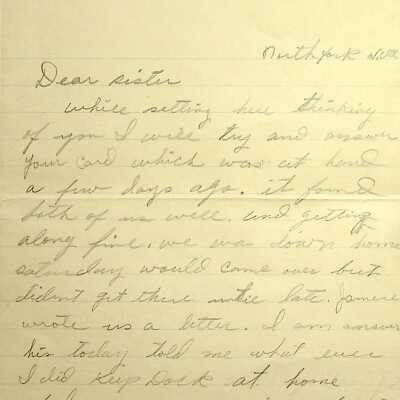 North York
Dear sister
while setting here thinking
of you I will try and answer
your card which was at hand
a few days ago. it found
both of us well. and getting
along fine. we was down home
saturday would come over but
didnt get there untie late.
wrote us a letter. I am answer
his today told me what ever
I did keep Dock at home